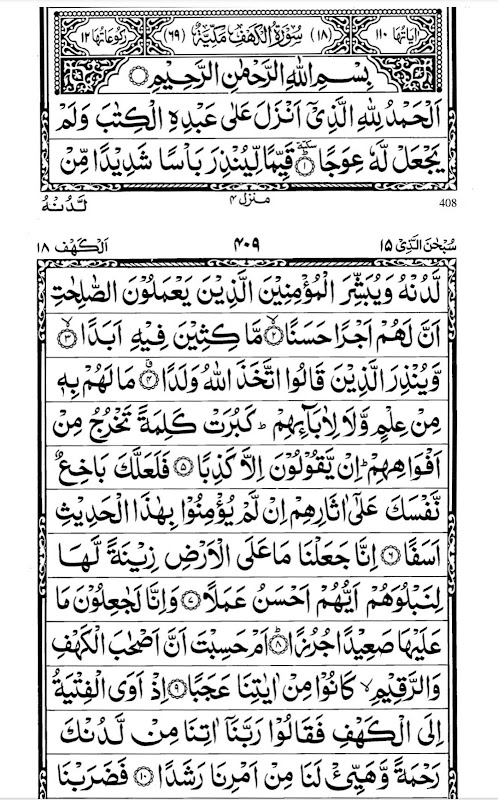 اٰيَاتُهَا ۱۱۰ (۱۸) سُوۡرَةُ الۡكَهۡفِ مَكِّيَّةٌ (۶۹) رُكُوۡعَاتُهَا ۱۲
بِسۡمِ اللهِ الرَّحۡمٰنِ الرَّحِيۡمِ
اَلۡحَمۡدُ لِلّٰهِ الَّذِىۡۤ اَنۡزَلَ عَلٰى عَبۡدِهِ الۡكِتٰبَ وَلَمۡ
يَجۡعَلۡ لَّهٗ عِوَجًا ؕسكتة ﴿۱﴾ قَيِّمًا لِّيُنۡذِرَ بَاۡسًا شَدِيۡدًا مِّنۡ
لَّدُنۡهُ منزل ۴ 408
سُبۡحٰنَ الَّذِىۡۤ ۱۵ ۴۰۹ اَلۡكَهۡف ۱۸
لَّدُنۡهُ وَيُبَشِّرَ الۡمُؤۡمِنِيۡنَ الَّذِيۡنَ يَعۡمَلُوۡنَ الصّٰلِحٰتِ
اَنَّ لَهُمۡ اَجۡرًا حَسَنًا ۙ‏﴿۲﴾ مَّا كِثِيۡنَ فِيۡهِ اَبَدًا ۙ‏﴿۳﴾
وَّيُنۡذِرَ الَّذِيۡنَ قَالُوا اتَّخَذَ اللهُ وَلَدًا ﴿۴﴾ مَا لَهُمۡ بِهٖ
مِنۡ عِلۡمٍ وَّلَا لِاٰبَآئِهِمۡؕ كَبُرَتۡ كَلِمَةً تَخۡرُجُ مِنۡ
اَفۡوَاهِهِمۡؕ اِنۡ يَّقُوۡلُوۡنَ اِلَّا كَذِبًا ﴿۵﴾ فَلَعَلَّكَ بَاخِعٌ
نَّفۡسَكَ عَلٰٓى اٰثَارِهِمۡ اِنۡ لَّمۡ يُؤۡمِنُوۡا بِهٰذَا الۡحَدِيۡثِ
اَسَفًا ﴿۶﴾ اِنَّا جَعَلۡنَا مَا عَلَى الۡاَرۡضِ زِيۡنَةً لَّهَا
لِنَبۡلُوَهُمۡ اَيُّهُمۡ اَحۡسَنُ عَمَلًا ﴿۷﴾ وَاِنَّا لَجٰعِلُوۡنَ مَا
عَلَيۡهَا صَعِيۡدًا جُرُزًا ؕ‏﴿۸﴾ اَمۡ حَسِبۡتَ اَنَّ اَصۡحٰبَ الۡكَهۡفِ
وَالرَّقِيۡمِۙ كَانُوۡا مِنۡ اٰيٰتِنَا عَجَبًا ﴿۹﴾ اِذۡ اَوَى الۡفِتۡيَةُ
اِلَى الۡكَهۡفِ فَقَالُوۡا رَبَّنَاۤ اٰتِنَا مِنۡ لَّدُنۡكَ
رَحۡمَةً وَّهَيِّئۡ لَنَا مِنۡ اَمۡرِنَا رَشَدًا ﴿۱۰﴾ فَضَرَبۡنَا